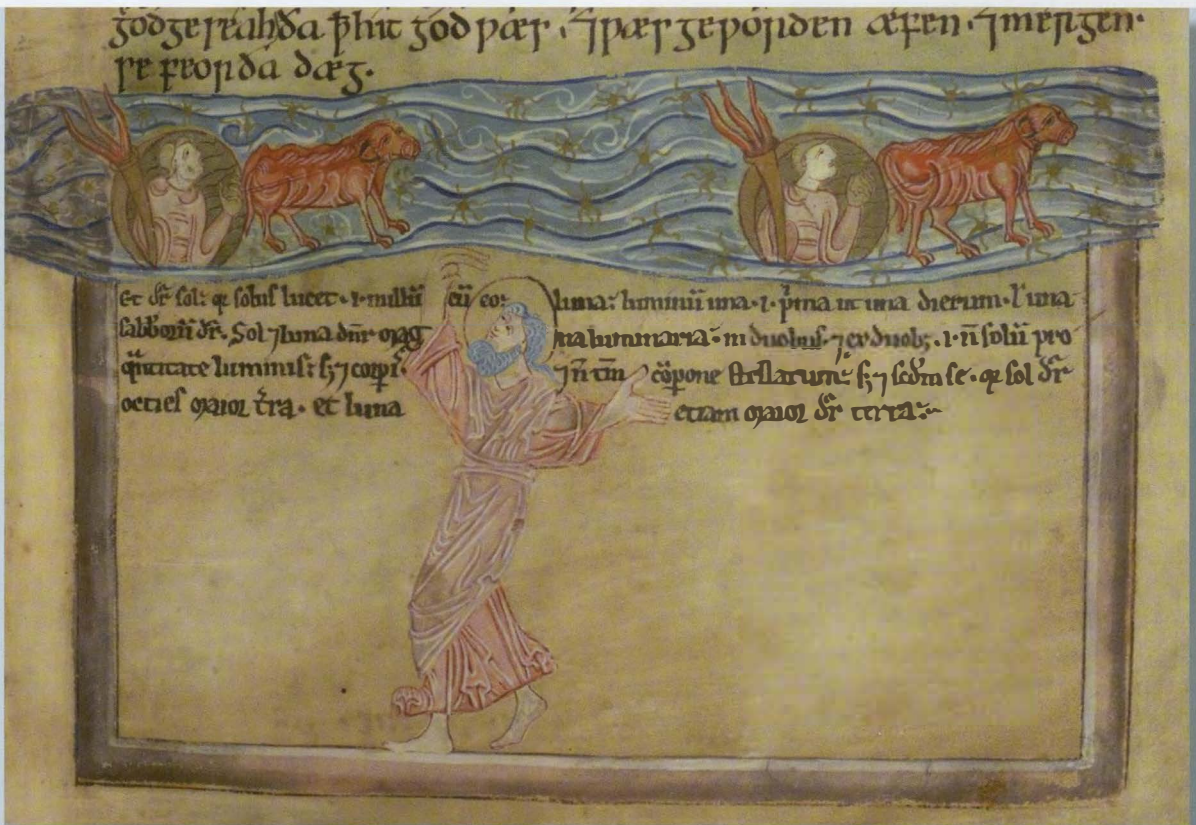 god geseah ða ꝥ hit god ƿæs . ⁊ ƿæs geƿorden æfen . ⁊ merigen .
se feorða dæg .
Et dr̄ sol: qr solus lucet . i . cū eo: luna: luminū una . i . p̄ma ut una dierum . l una
sabbōrū dr̄ . Sol ⁊ luna dn̄r mag na luminaria: in duobus . ⁊ ex duob; . i . n̄ solū pro
q̄ntitate luminis: s; ⁊ corp̄i . ⁊ n̄ tm̄ cōpone stellarum: s; ⁊ scd̄m se . qr sol dr̄
octies maior t̄ra . et luna etiam maior dr̄ terra